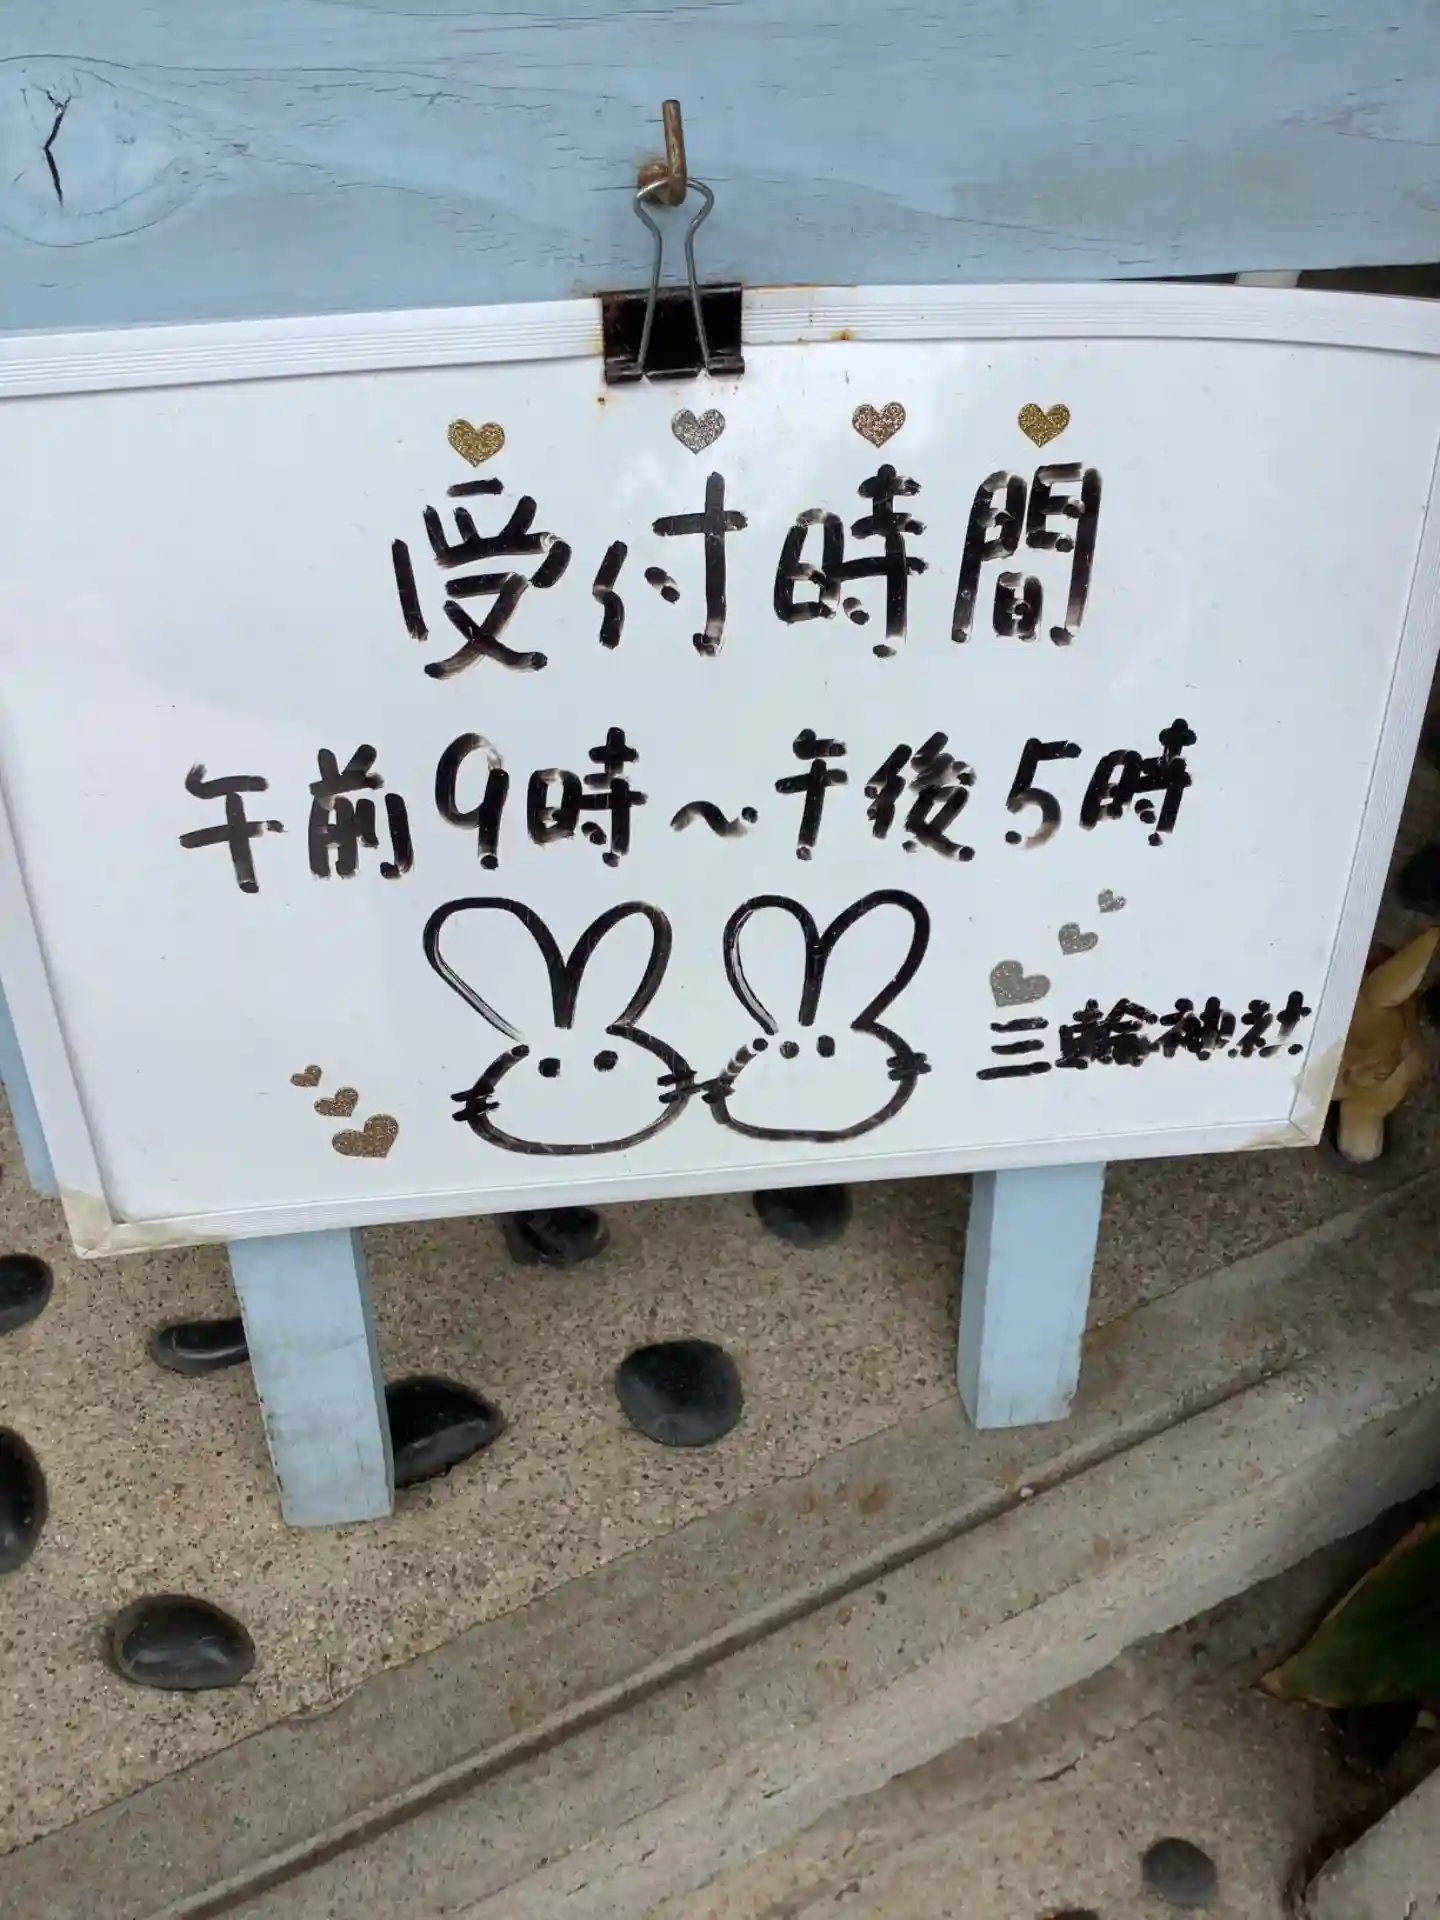 受付時間
午前9時～午後5時
三輪神社